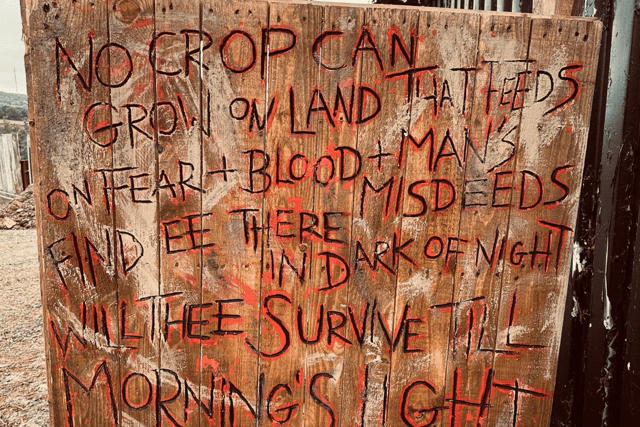 NO CROP CAN
GROW ON LAND THAT FEEDS
ON FEAR + BLOOD + MAN'S
MISDEEDS
FIND EE THERE
IN DARK OF NIGHT
WILL THEE SURVIVE TILL
MORNING'S LIGHT